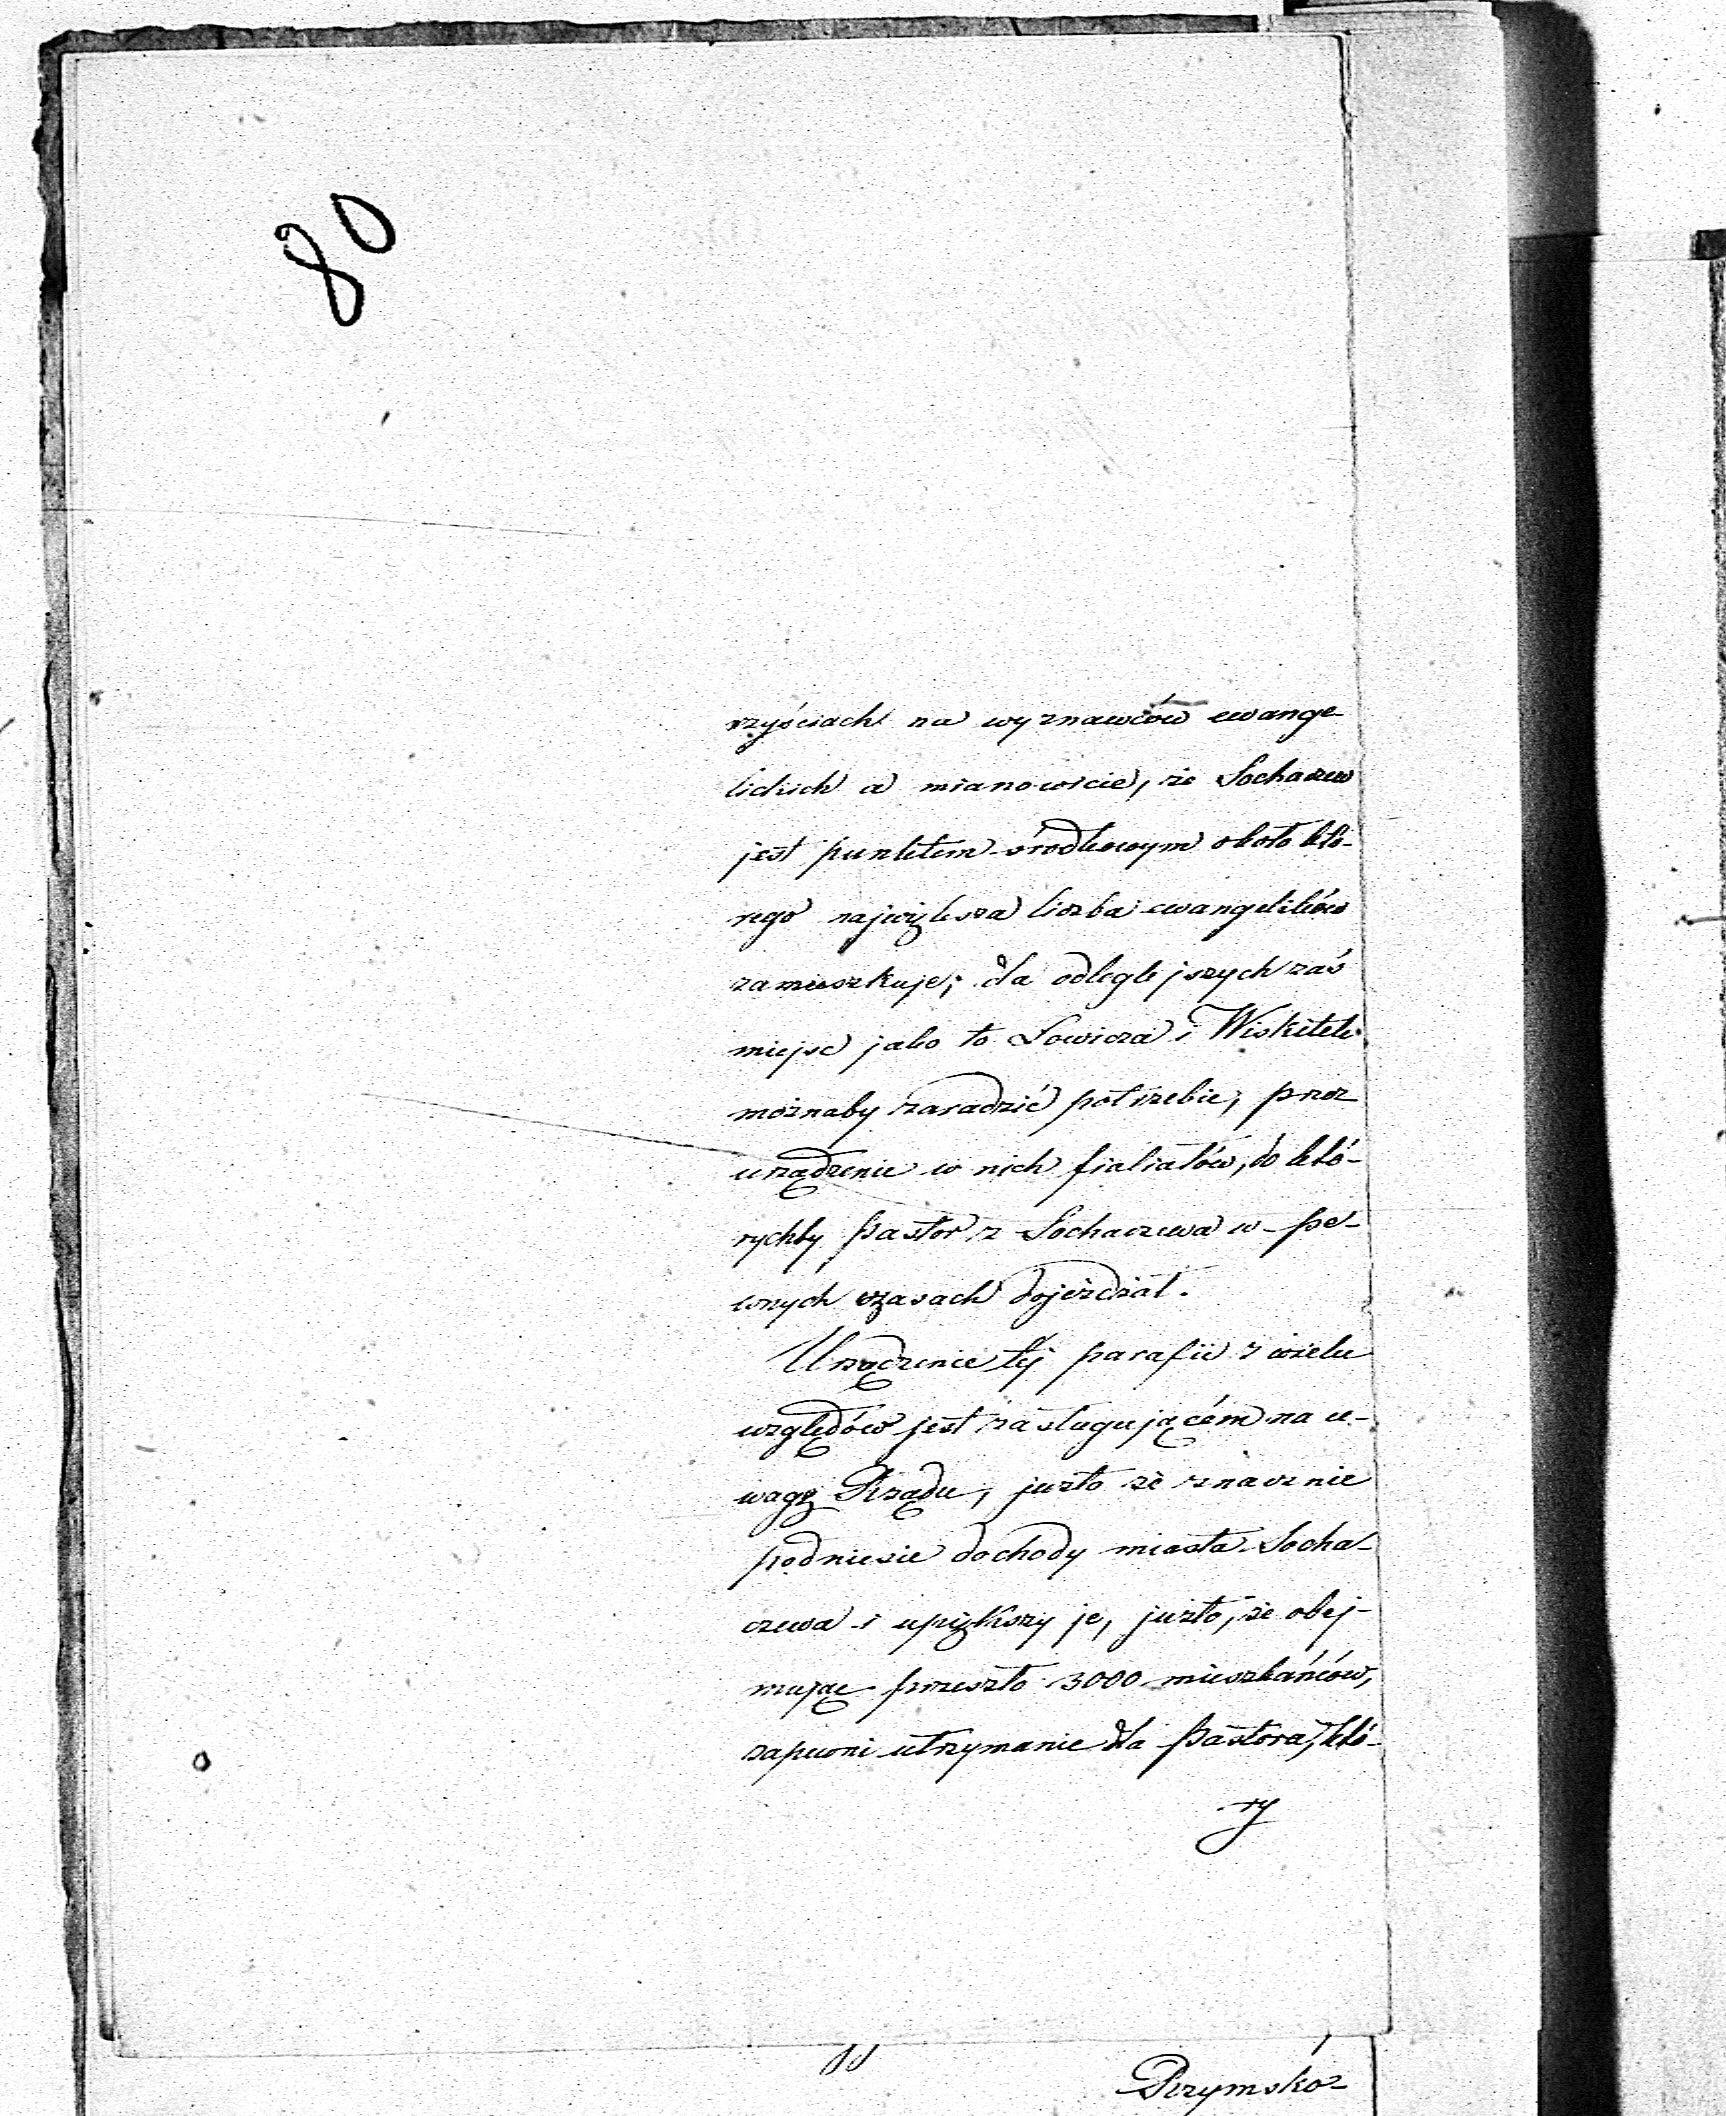 80
rzyściach na wyznawców ewange-
lickich a mianowicie, że Sochaczew
jest punktem środkowym około któ-
rego największa liczba ewangelików
zamieszkuje; dla odleglejszych zaś
miejsc jako to Łowicza i Wiskitek
możnaby zaradzić potrzebie, przez
urządzenie w nich fialiałów, do któ-
rychby Pastor z Sochaczewa w pe-
wnych czasach dojeżdżał.
Urządzenie tej parafii z wielu
względów jest zasługującém na u-
wagę Rządu, jużto że znacznie
podniesie dochody miasta Socha-
czewa i upiększy je, jużto, że obej-
mując przeszło 3000 mieszkańców,
zapewni utrzymanie dla Pastora, któ-
ry
Rzymsko-